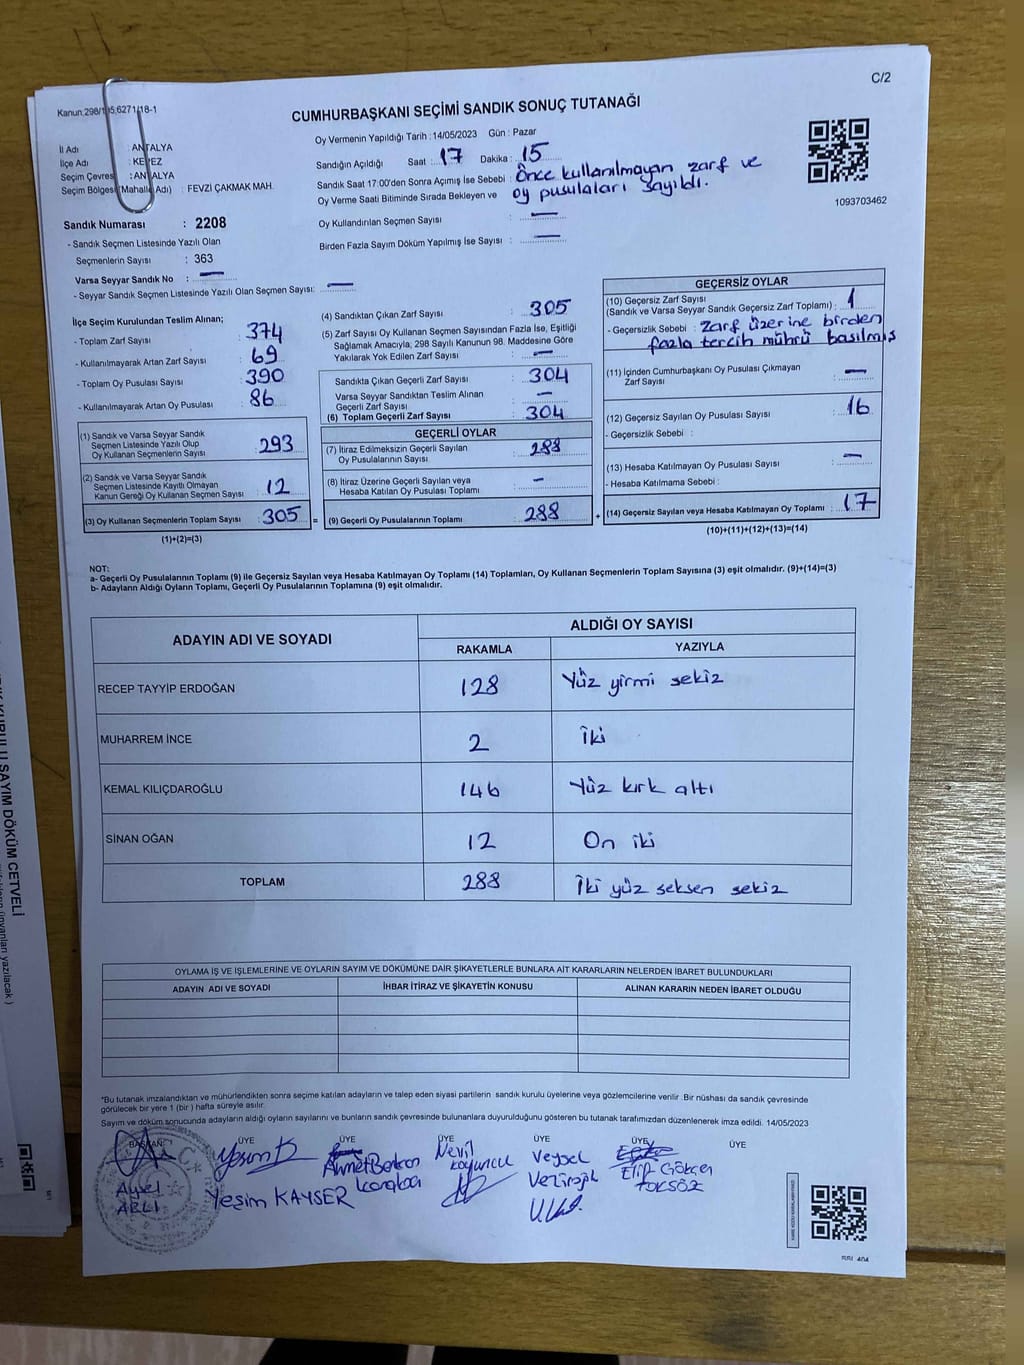 C/2
Kanun:298/105;6271/18-1
CUMHURBAŞKANI SEÇİMİ SANDIK SONUÇ TUTANAĞI
İl Adı : ANTALYA
İlçe Adı : KEPEZ
Seçim Çevresi : ANTALYA
Seçim Bölgesi (Mahalle Adı) : FEVZİ ÇAKMAK MAH.
Sandık Numarası : 2208
- Sandık Seçmen Listesinde Yazılı Olan
Seçmenlerin Sayısı : 363
Varsa Seyyar Sandık No : —
- Seyyar Sandık Seçmen Listesinde Yazılı Olan Seçmen Sayısı: —
Oy Vermenin Yapıldığı Tarih : 14/05/2023 Gün : Pazar
Sandığın Açıldığı Saat : 17 Dakika : 15
Sandık Saat 17:00'den Sonra Açımış İse Sebebi : Önce kullanılmayan zarf ve
oy pusulaları sayıldı.
Oy Verme Saati Bitiminde Sırada Bekleyen ve
Oy Kullandırılan Seçmen Sayısı : —
Birden Fazla Sayım Döküm Yapılmış İse Sayısı : —
1093703462
İlçe Seçim Kurulundan Teslim Alınan;
- Toplam Zarf Sayısı : 374
- Kullanılmayarak Artan Zarf Sayısı : 69
- Toplam Oy Pusulası Sayısı : 390
- Kullanılmayarak Artan Oy Pusulası : 86
(1) Sandık ve Varsa Seyyar Sandık
Seçmen Listesinde Yazılı Olup
Oy Kullanan Seçmenlerin Sayısı : 293
(2) Sandık ve Varsa Seyyar Sandık
Seçmen Listesinde Kayıtlı Olmayan
Kanun Gereği Oy Kullanan Seçmen Sayısı : 12
(3) Oy Kullanan Seçmenlerin Toplam Sayısı : 305 =
(1)+(2)=(3)
(4) Sandıktan Çıkan Zarf Sayısı : 305
(5) Zarf Sayısı Oy Kullanan Seçmen Sayısından Fazla İse, Eşitliği
Sağlamak Amacıyla, 298 Sayılı Kanunun 98. Maddesine Göre
Yakılarak Yok Edilen Zarf Sayısı : —
Sandıkta Çıkan Geçerli Zarf Sayısı : 304
Varsa Seyyar Sandıktan Teslim Alınan
Geçerli Zarf Sayısı : —
(6) Toplam Geçerli Zarf Sayısı : 304
GEÇERLİ OYLAR
(7) İtiraz Edilmeksizin Geçerli Sayılan
Oy Pusulalarının Sayısı : 288
(8) İtiraz Üzerine Geçerli Sayılan veya
Hesaba Katılan Oy Pusulası Toplamı : -
(9) Geçerli Oy Pusulalarının Toplamı : 288 +
GEÇERSİZ OYLAR
(10) Geçersiz Zarf Sayısı
(Sandık ve Varsa Seyyar Sandık Geçersiz Zarf Toplamı) : 1
- Geçersizlik Sebebi : Zarf üzerine birden
fazla tercih mührü basılmış
(11) İçinden Cumhurbaşkanı Oy Pusulası Çıkmayan
Zarf Sayısı : —
(12) Geçersiz Sayılan Oy Pusulası Sayısı : 16
- Geçersizlik Sebebi :
(13) Hesaba Katılmayan Oy Pusulası Sayısı : —
- Hesaba Katılmama Sebebi :
(14) Geçersiz Sayılan veya Hesaba Katılmayan Oy Toplamı : 17
(10)+(11)+(12)+(13)=(14)
NOT:
a- Geçerli Oy Pusulalarının Toplamı (9) ile Geçersiz Sayılan veya Hesaba Katılmayan Oy Toplamı (14) Toplamları, Oy Kullanan Seçmenlerin Toplam Sayısına (3) eşit olmalıdır. (9)+(14)=(3)
b- Adayların Aldığı Oyların Toplamı, Geçerli Oy Pusulalarının Toplamına (9) eşit olmalıdır.
ADAYIN ADI VE SOYADI ALDIĞI OY SAYISI
RAKAMLA YAZIYLA
RECEP TAYYİP ERDOĞAN 128 Yüz yirmi sekiz
MUHARREM İNCE 2 İki
KEMAL KILIÇDAROĞLU 146 Yüz kırk altı
SİNAN OĞAN 12 On iki
TOPLAM 288 İki yüz seksen sekiz
OYLAMA İŞ VE İŞLEMLERİNE VE OYLARIN SAYIM VE DÖKÜMÜNE DAİR ŞİKAYETLERLE BUNLARA AİT KARARLARIN NELERDEN İBARET BULUNDUKLARI
ADAYIN ADI VE SOYADI İHBAR İTİRAZ VE ŞİKAYETİN KONUSU ALINAN KARARIN NEDEN İBARET OLDUĞU
*Bu tutanak imzalandıktan ve mühürlendikten sonra seçime katılan adayların ve talep eden siyasi partilerin sandık kurulu üyelerine veya gözlemcilerine verilir .Bir nüshası da sandık çevresinde
görülecek bir yere 1 (bir ) hafta süreyle asılır.
Sayım ve döküm sonucunda adayların aldığı oyların sayılarını ve bunların sandık çevresinde bulunanlara duyurulduğunu gösteren bu tutanak tarafımızdan düzenlenerek imza edildi. 14/05/2023
BAŞKAN ÜYE ÜYE ÜYE ÜYE ÜYE ÜYE
Aysel ARLI
Yeşim KAYSER
Ahmet Berkan
Nevil
Veysel
Elif Gökçen
TOKSÖZ
SAYIM DÖKÜM CETVELİ